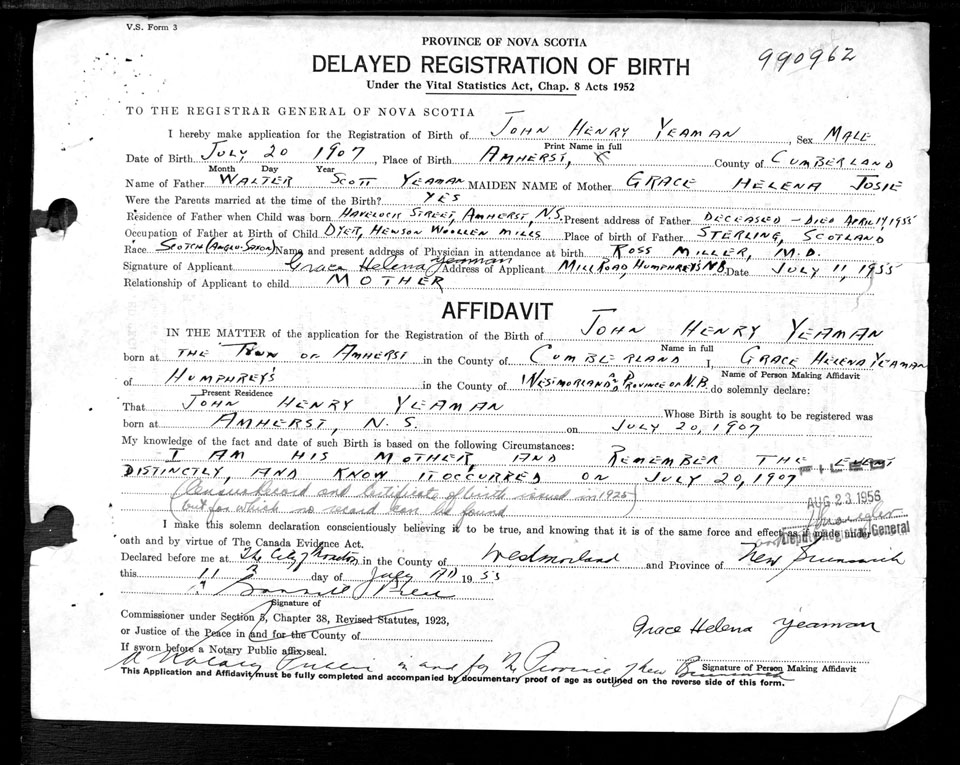 V.S. Form 3
PROVINCE OF NOVA SCOTIA
990962
DELAYED REGISTRATION OF BIRTH
Under the Vital Statistics Act, Chap. 8 Acts 1952
TO THE REGISTRAR GENERAL OF NOVA SCOTIA
I hereby make application for the Registration of Birth of JOHN HENRY YEAMAN, Sex MALE
Print Name in full
Date of Birth JULY 20 1907, Place of Birth AMHERST, County of CUMBERLAND
Month Day Year
Name of Father WALTER SCOTT YEAMAN MAIDEN NAME of Mother GRACE HELENA JOSIE
Were the Parents married at the time of the Birth? YES
Residence of Father when Child was born HAVELOCK STREET, AMHERST, N.S. Present address of Father DECEASED - DIED APRIL 17, 1955
Occupation of Father at Birth of Child DYER, HEWSON WOOLLEN MILLS Place of birth of Father STERLING, SCOTLAND
Race SCOTCH (ANGLO-SAXON) Name and present address of Physician in attendance at birth ROSS MILLER, M.D.
Signature of Applicant Grace Helena Yeaman Address of Applicant MILL ROAD, HUMPHREYS N.B. Date JULY 11, 1955
Relationship of Applicant to child MOTHER
AFFIDAVIT
IN THE MATTER of the application for the Registration of the Birth of JOHN HENRY YEAMAN
Name in full
born at THE TOWN OF AMHERST in the County of CUMBERLAND I, GRACE HELENA YEAMAN
Name of Person Making Affidavit
of HUMPHREY'S in the County of WESTMORLAND PROVINCE OF N.B. do solemnly declare:
Present Residence
That JOHN HENRY YEAMAN Whose Birth is sought to be registered was
born at AMHERST, N.S. on JULY 20, 1907
My knowledge of the fact and date of such Birth is based on the following Circumstances:
I AM HIS MOTHER, AND REMEMBER THE EVENT
DISTINCTLY, AND KNOW IT OCCURRED ON JULY 20, 1907
FILED
(Census Record and Certificate of birth issued in 1925)
(but for which no record can be found
AUG 23 1956
I make this solemn declaration conscientiously believing it to be true, and knowing that it is of the same force and effect as if made under
Deputy Registrar General
oath and by virtue of The Canada Evidence Act.
Declared before me at The City of Moncton in the County of Westmorland and Province of New Brunswick
this 11 day of July AD 1955
Signature of
Commissioner under Section 5, Chapter 38, Revised Statutes, 1923,
or Justice of the Peace in and for the County of
Grace Helena Yeaman
If sworn before a Notary Public affix seal.
A Notary Public in and for the Province of New Brunswick
Signature of Person Making Affidavit
This Application and Affidavit must be fully completed and accompanied by documentary proof of age as outlined on the reverse side of this form.